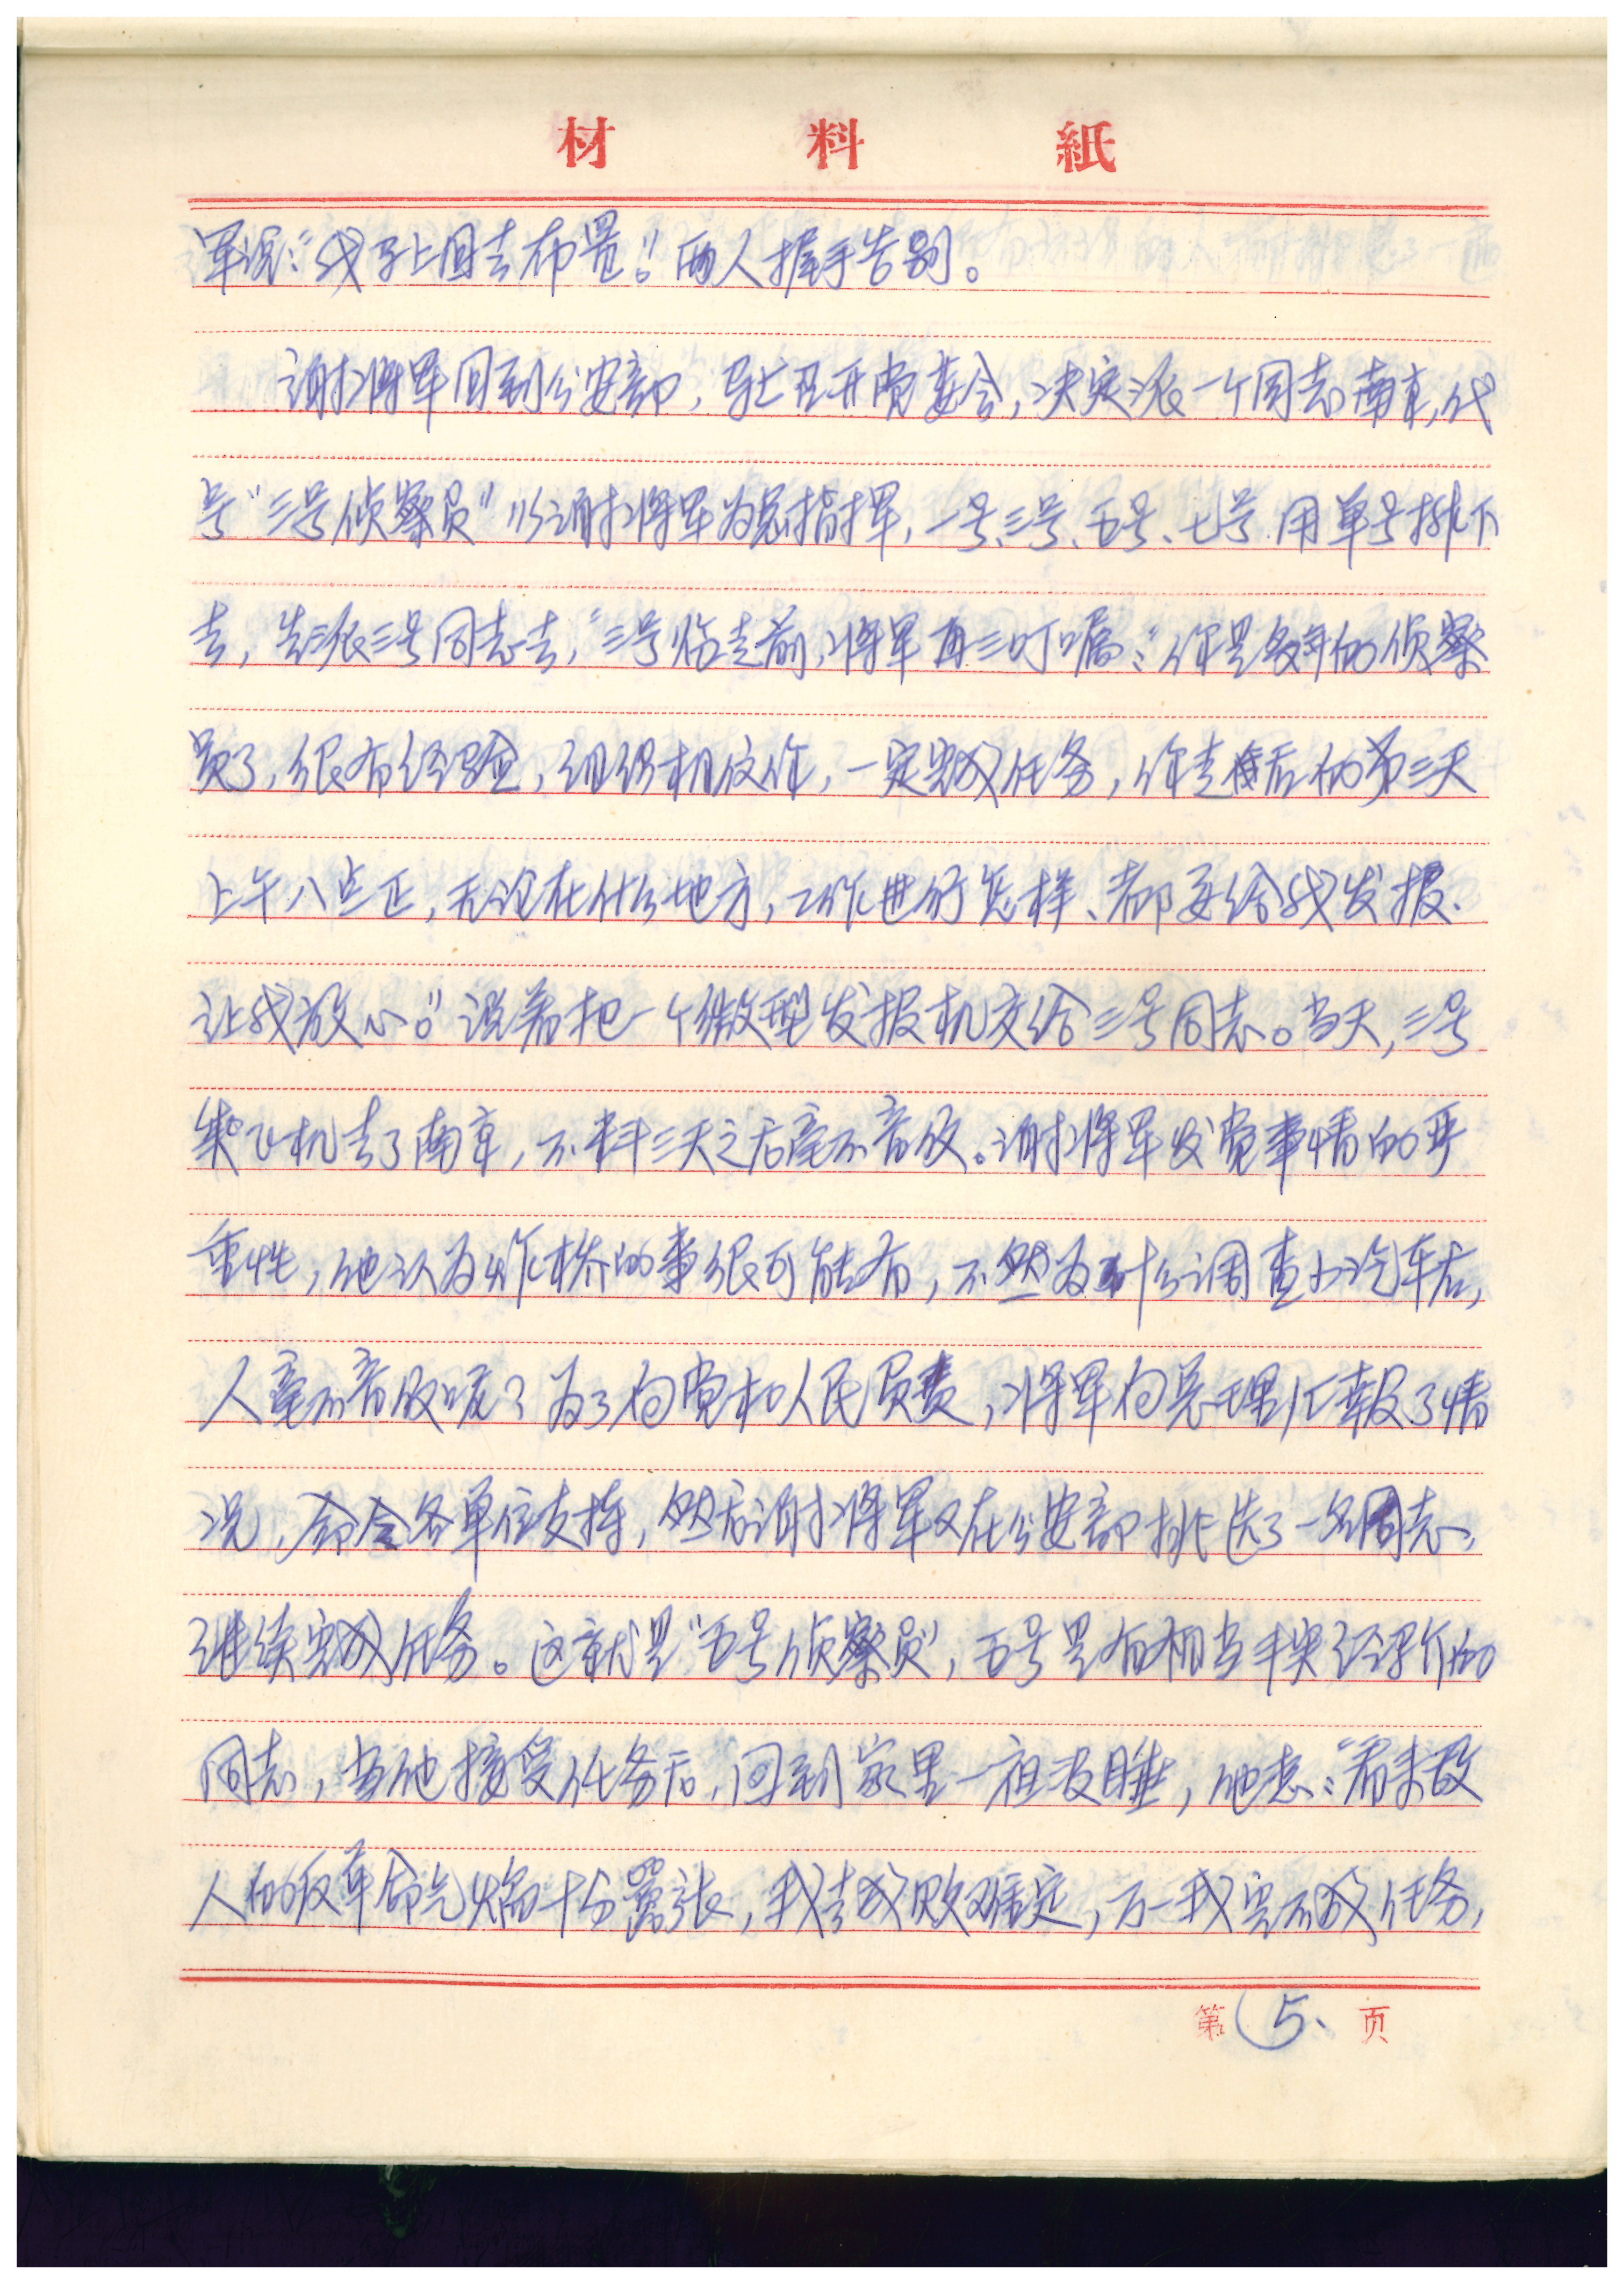 材料紙
军说:“我马上回去布置。”两人握手告别。
谢将军回到公安部,马上召开党委会,决定派一个同志南京,代
号“三号侦察员”以谢将军为总指挥,一号、三号、五号、七号用单号排下
去,先派三号同志去,三号临走前,将军再三叮嘱:“你是多年的侦察
员了,很有经验,组织相信你,一定完成任务,你走后的第三天
上午八点正,无论在什么地方,工作进行怎样、都要给我发报、
让我放心。”说着把一个微型发报机交给三号同志。当天,三号
乘飞机去了南京,不料三天之后毫不音放。谢将军发觉事情的严
重性,他认为炸桥的事很可能有,不然为什么调查小汽车后,
人毫不音放呢?为了向党和人民负责,将军向总理汇报了情
况,命令各单位支持,然后谢将军又在公安部挑选了一名同志,
继续完成任务。这就是“五号侦察员”,五号是有相当丰实经验的
同志,当他接受任务后,回到家里一夜没睡,他想:“看来敌
人的反革命气焰十分嚣张,我去成败难定,万一我完不成任务,
第5页